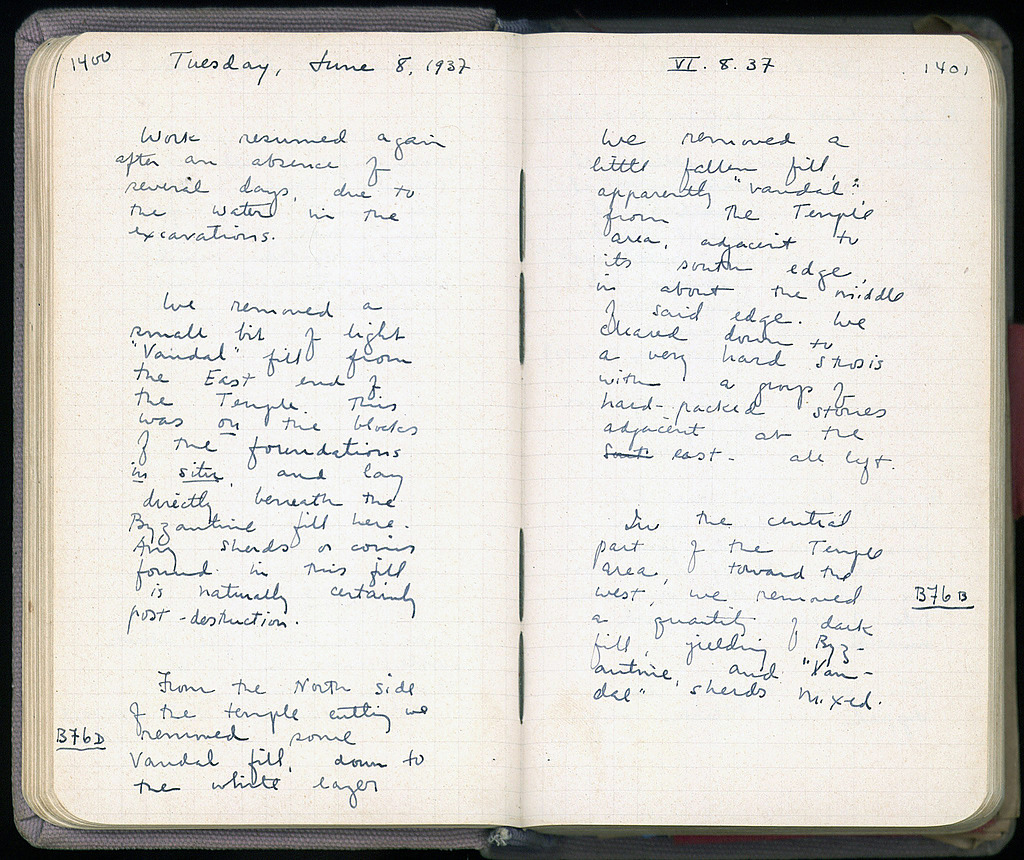 1400 Tuesday, June 8, 1937
Work resumed again
after an absence of
several days, due to
the water in the
excavations.
We removed a
small bit of light
"Vandal" fill from
the East end of
the Temple. This
was on the blocks
of the foundations
in situ, and lay
directly beneath the
Byzantine fill here.
Any sherds or coins
found in this fill
is naturally certainly
post-destruction.
From the North side
of the temple cutting we
B76D removed some
Vandal fill, down to
the white layer
VI. 8. 37 1401
We removed a
little fallen fill,
apparently "Vandal",
from the Temple
area, adjacent to
its south edge,
in about the middle
of said edge. We
cleared down to
a very hard stosis
with a group of
hard-packed stones
adjacent at the
east - all left.
In the central
part of the Temple
area, toward the
west, we removed B76B
a quantity of dark
fill, yielding Byz-
antine, and "Van-
dal" sherds mixed.